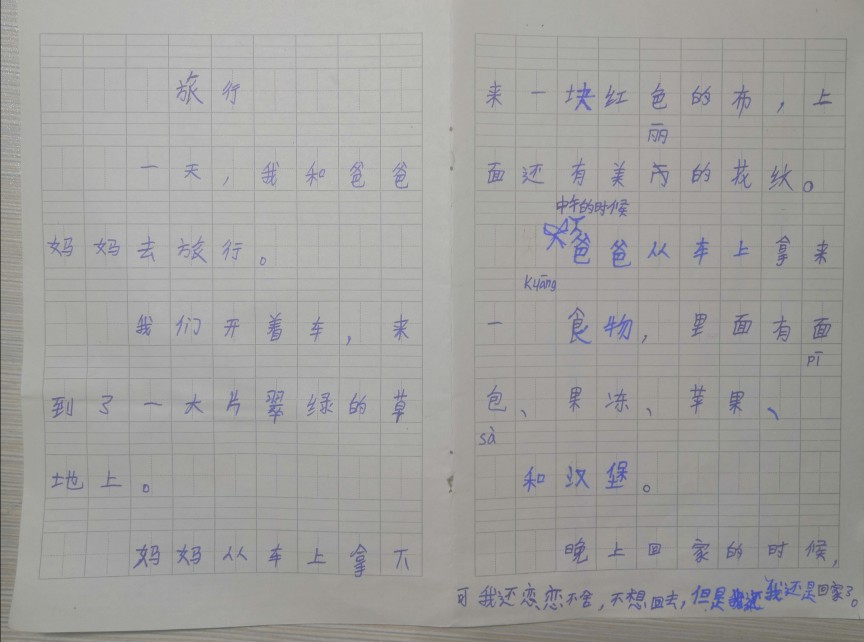 旅行
一天，我和爸爸
妈妈去旅行。
我们开着车，来
到了一大片翠绿的草
地上。
妈妈从车上拿下
来一块红色的布，上
丽
面还有美丙的花纹。
中午的时候
爸爸从车上拿来
kuāng
一 食物，里面有面
pī
包、果冻、苹果、
sà
和汉堡。
晚上回家的时候，
可我还恋恋不舍，不想回去，但是我还是回家了。